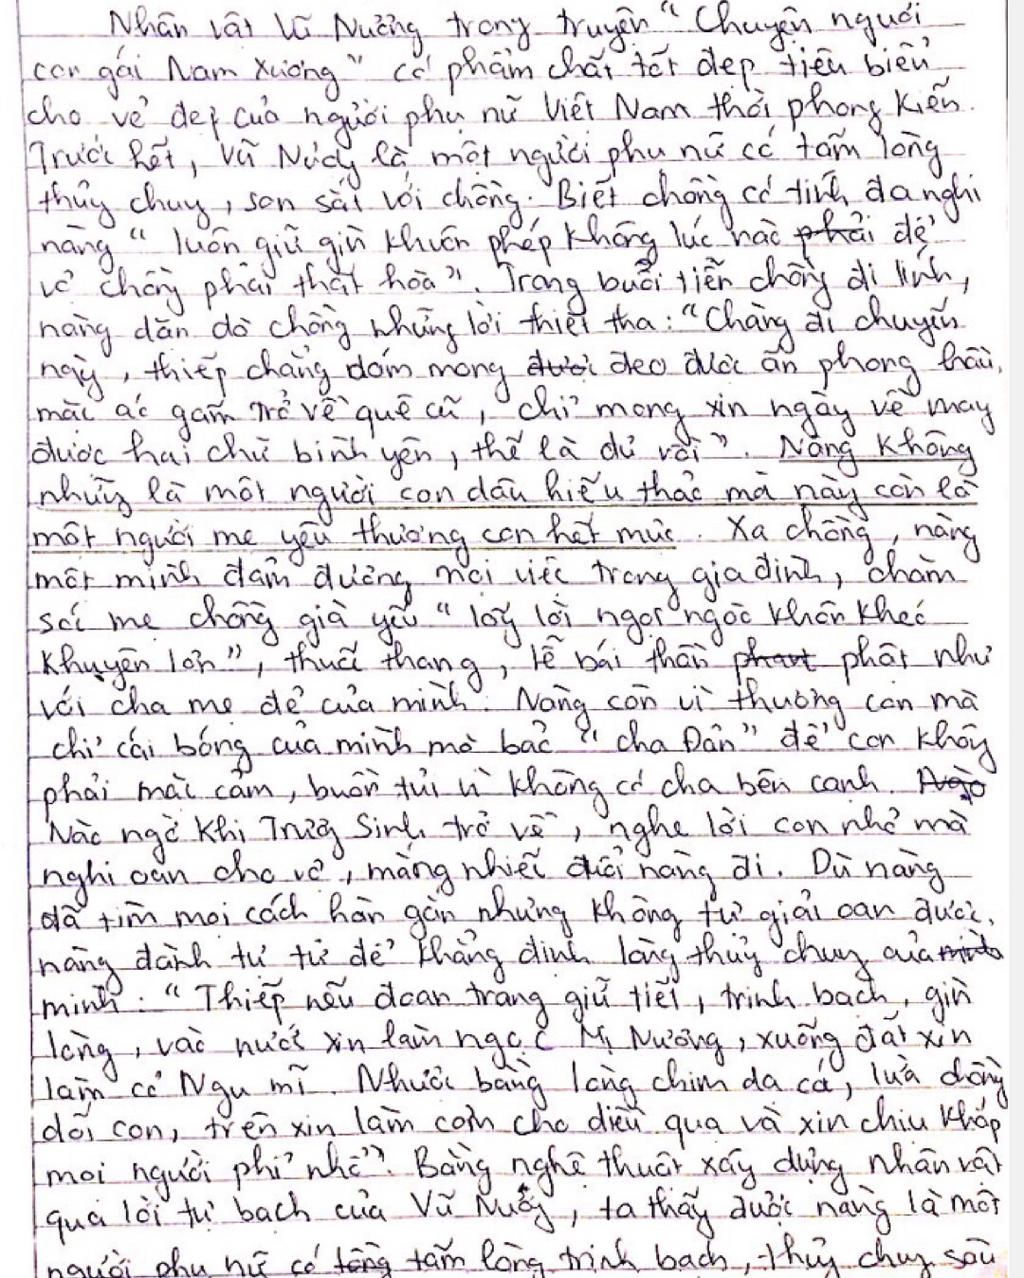 Nhân vật Vũ Nương trong truyện "Chuyện người
con gái Nam Xương" có phẩm chất tốt đẹp tiêu biểu
cho vẻ đẹp của người phụ nữ Việt Nam thời phong kiến.
Trước hết, Vũ Nương là một người phụ nữ có tấm lòng
thủy chung, son sắt với chồng. Biết chồng có tính đa nghi
nàng "luôn giữ gìn khuôn phép không lúc nào phải để
vợ chồng phải thất hòa". Trong buổi tiễn chồng đi lính,
nàng dặn dò chồng những lời thiết tha: "Chàng đi chuyến
này, thiếp chẳng dám mong được đeo được ấn phong hầu,
mặc áo gấm trở về quê cũ, chỉ mong xin ngày về may
được hai chữ bình yên, thế là đủ rồi". Nàng không
những là một người con dâu hiếu thảo mà này còn là
một người mẹ yêu thương con hết mực. Xa chồng, nàng
một mình đảm đương mọi việc trong gia đình, chăm
sóc mẹ chồng già yếu "lấy lời ngọt ngào khôn khéo
khuyên lơn", thuốc thang, lễ bái thần phật như
với cha mẹ đẻ của mình. Nàng còn vì thương con mà
chỉ cái bóng của mình mà bảo "cha Đản" để con không
phải mặc cảm, buồn tủi vì không có cha bên cạnh.
Nào ngờ khi Trương Sinh trở về, nghe lời con nhỏ mà
nghi oan cho vợ, mắng nhiếc đuổi nàng đi. Dù nàng
đã tìm mọi cách hàn gắn nhưng không tự giải oan được,
nàng đành tự tử để khẳng định lòng thủy chung của
mình: "Thiếp nếu đoan trang giữ tiết, trinh bạch, gìn
lòng, vào nước xin làm ngọc Mị Nương, xuống đất xin
làm cỏ Ngu mĩ. Nhược bằng lòng chim dạ cá, lừa chồng
dối con, trên xin làm cơm cho diều quạ và xin chịu khắp
mọi người phỉ nhổ". Bằng nghệ thuật xây dựng nhân vật
qua lời tự bạch của Vũ Nương, ta thấy được nàng là một
người phụ nữ có tấm lòng trinh bạch, thủy chung sâu